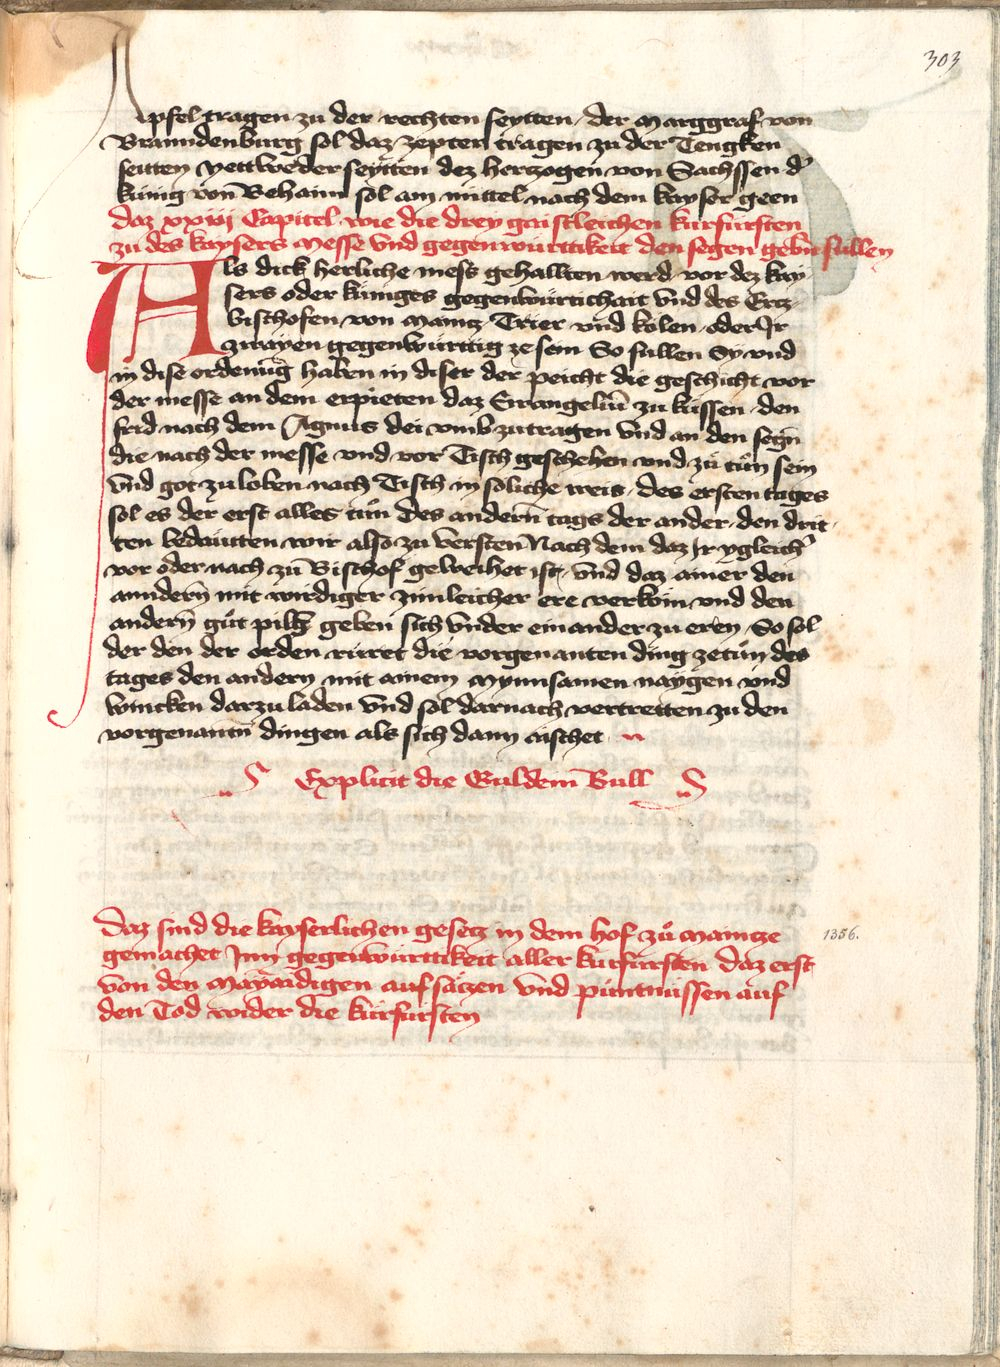 303
Apfel tragen zu der rechten seytten / der Marggraf von
Brannndenburg sol daz zepter tragen zu der Tengken
seitten yettweder seytten dez hertzogen von Sachssen d'
künig von Behaim sol am mittel nach dem kayser geen
daz xxiij Capitel wie die drey gaistleichen kurfürsten
zu des kaysers messe vnd gegenwürttikeit den segen gebn̄ sullen
Als dick herliche mess gehallten werd vor dez kay
sers oder küniges gegenwürtichait vnd des Ertz
bischofen von maintz / Trier vnd kölen / oder Jr
zwayen gegenwürttig ze sein So sullen Sy vnd
in dise ordenūg haben in diser der peicht die geschicht vor
der messe an dem erpieten daz Ewangeliū zu küssen / den
frid nach dem Agnus dei vmb zutragen vnd an den segn̄
die nach der messe vnd vor Tisch geschehen vnd zů tůn sein
vnd got zu loben nach Tisch in soliche weis / des ersten tages
sol es der erst alles tůn Des andern̄ tags der ander / den drit
ten bedäutten wir also zu versten Nach dem daz Jr ygleich'
vor oder nach zu Bischof geweihet ist / vnd daz ainer den
anndern̄ mit wirdiger zimleicher ere verkom vnd den
andern̄ gůt pild geben sich vnder einander zu eren / So sol
der den der orden rüret die vorgenanten ding ze tůn des
tages den andern mit ainem mynnsamen naygen vnd
wincken darzu laden vnd sol darnach vertretten zu den
vorgenantn̄ dingen als sich dann aischet
Explicit die Guldein Bull
Daz sind die kayserlichen gesetz in dem hof zů maintze
1356.
gemachet Jnn gegenwürttikeit aller kurfürsten daz erst
von den mayaidigen auf sätzen vnd püntnüssen auf
den Tod wider die kurfürsten